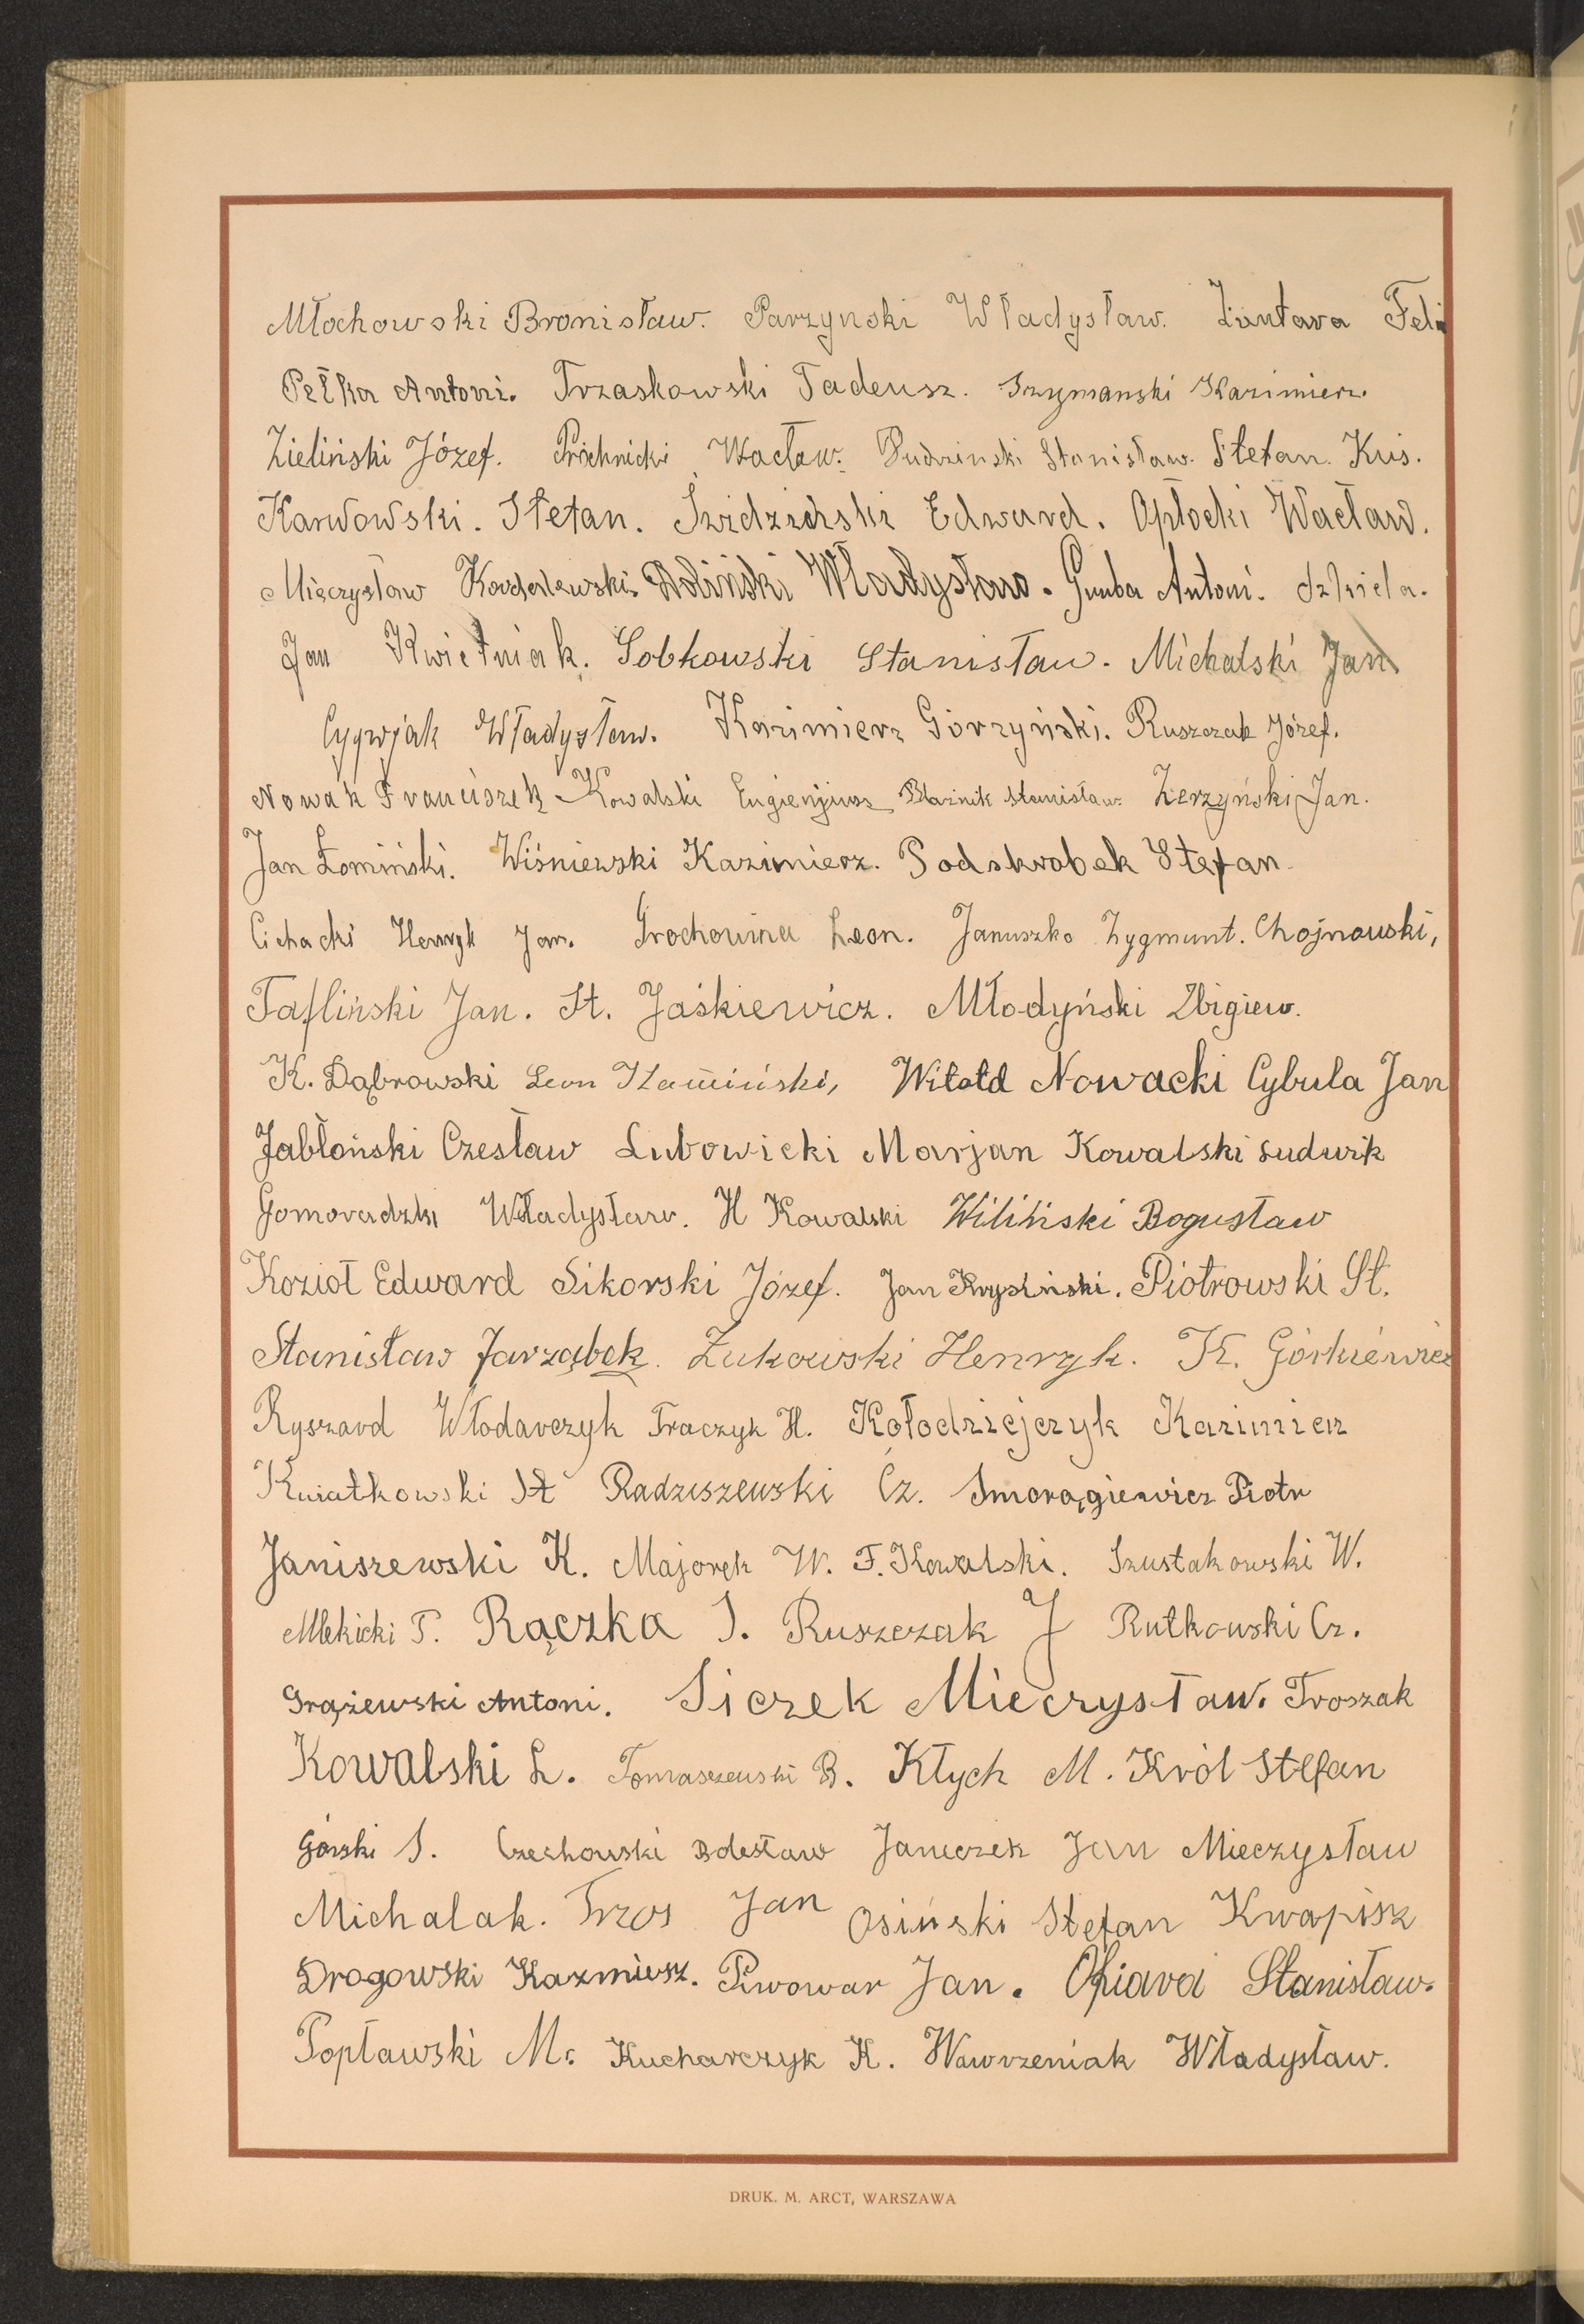 Młochowski Bronisław. Parzynski Władysław. Żuntara Feli
Pełka Antoni. Trzaskowski Tadeusz. Szymanski Kazimierz.
Zieliński Józef. Próchnicki Wacław. Pudzinski Stanisław. Stefan Kuś.
Karwowski. Stefan. Świdziński Edward. Opłocki Wacław.
Mieczysław Kowalewski. Woliński Władysław. Gumba Antoni. Szkiela.
Jan Kwietniak. Sobkowski Stanisław. Michalski Jan
Cygwjak Władysław. Kazimierz Górzyński. Ruszczak Józef.
Nowak Franciszek Kowalski Eugienjusz Błaźnik Stanisław Zerzyński Jan.
Jan Łomiński. Wiśniewski Kazimierz. Podskrobek Stefan
Cichacki Henryk Jan. Grochowina Leon. Januszko Zygmunt. Chojnowski,
Tafliński Jan. St. Jaśkiewicz. Młodyński Zbigiew.
K. Dąbrowski Leon Kamiński, Witold Nowacki Cybula Jan
Jabłoński Czesław Lubowicki Marjan Kowalski Ludwik
Gomoradzki Władysław. H Kowalski Wiliński Bogusław
Kozioł Edward Sikorski Józef. Jan Krysiński. Piotrowski St.
Stanisław Jarząbek. Żukowski Henryk. K. Górkiéwicz
Ryszard Włodarczyk Traczyk H. Kołodziejczyk Kazimierz
Kwiatkowski St Radziszewski Cz. Smorągiewicz Piotr
Janiszewski K. Majorek W. F. Kowalski. Szustakowski W.
Mlekicki T. Rączka S. Ruszczak J Rutkowski Cz.
Grążewski Antoni. Siczek Mieczysław. Troszak
Kowalski L. Tomaszewski B. Kłych M. Król Stefan
Górski S. Czechowski Bolesław Janeczek Jan Mieczysław
Michalak. Trzos Jan Osiński Stefan Kwapisz
Drogowski Kazmiesz. Piwowar Jan. Ofiara Stanisław.
Popławski M. Kucharczyk K. Wawrzeniak Władysław.
DRUK. M. ARCT, WARSZAWA